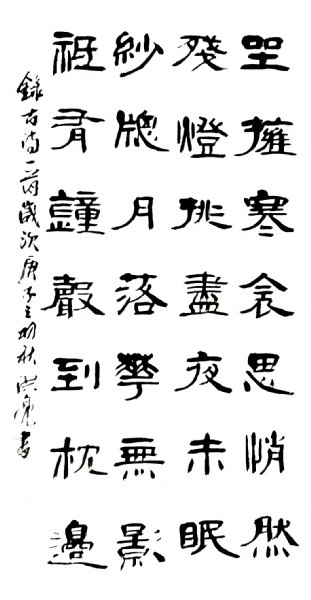 坐擁寒衾思悄然
殘燈挑盡夜未眠
紗牕月落華無影
祗有鐘聲到枕邊
錄古詩一首歲次庚子之初秋洪亮書